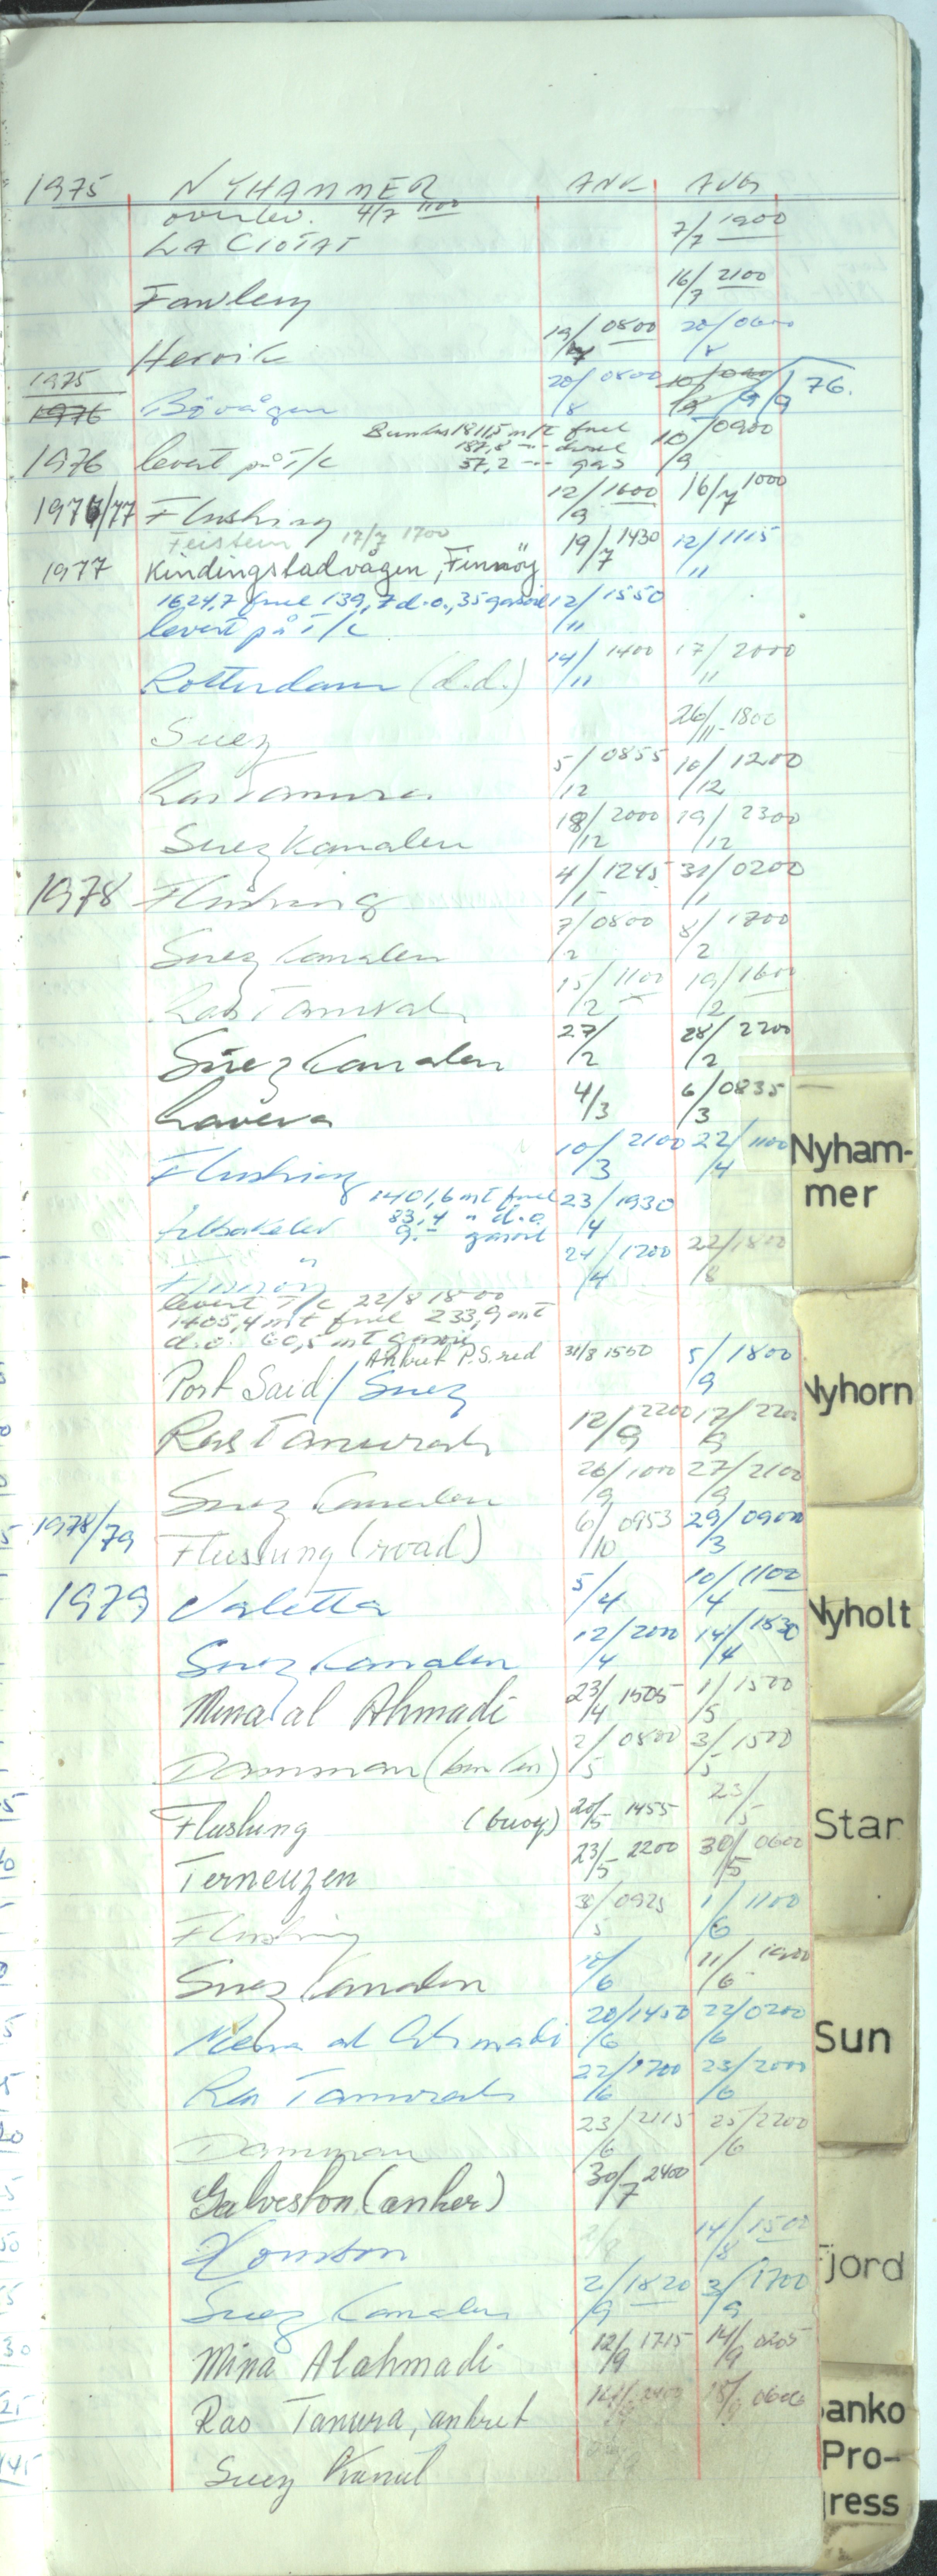 1975 NYHAMMER ANK AVG
overlev. 4/7 1100
LA CIOTAT 7/7 1900
Fawley 16/7 2100
Hervik 19/7 0800 20/8
1975
1976 Bövågen 20/8 0800 9/9 76.
Bunkers 1811,5 m/t fuel
187,8 -"- diesel
1976 levert på T/C 57,2 -"- gas 10/9 0900
1976/77 Flushing 12/9 1600 16/7 1000
Feistein 17/7 1700
1977 Kindingstadvågen, Finnöy 19/7 1430 12/11 1115
1624,7 fuel 139,7 d.o., 35 gasoil 12/11 1550
levert på T/C
Rotterdam (d.d.) 14/11 1400 17/11 2000
Suez 26/11 1800
Ras Tanura 5/12 0855 10/12 1200
Suez Kanalen 18/12 2000 19/12 2300
1978 Flushing 4/1 1245 31/1 0200
Suez Kanalen 7/2 0800 8/2 1700
Ras Tanurah 15/2 1100 19/2 1600
Suez Kanalen 27/2 28/2 2200
Lavera 4/3 6/3 0835
Flushing 10/3 2100 22/4 1100
1401,6 mt fuel 23/4 1930
83,4 " d.o.
9.- gasoil
" 24/4 1200 22/8 1800
levert T/C 22/8 1800
1405,4 mt fuel 233,9 mt
d.o. 60,5 mt gasoil
Ankret P.S. red 31/8 1550
Port Said / Suez 5/9 1800
Ras Tanurah 12/9 2200 17/9
Suez Kanalen 26/9 1000 27/9 2100
1978/79 Flushing (road) 6/10 0953 29/3 0900
1979 Valetta 5/4 10/4 1100
Suez Kanalen 12/4 2000 14/4 1830
Mina al Ahmadi 23/4 1505 1/5 1500
Damman (bunkers) 2/5 0800 3/5 1500
Flushing (buoy) 20/5 1455 23/5
Terneuzen 23/5 2200 30/5 0600
Flushing 30/5 0925 1/6 1100
Suez Kanalen 10/6 11/6 1900
Mena al Ahmadi 20/6 1450 22/6 0200
Ras Tanurah 22/6 1700 23/6 2000
Damman 23/6 2115 25/6 2200
Galveston (anker) 30/7 2400
Houston 2/8 14/8 1500
Suez Kanalen 2/9 1820 3/9 1700
Mina Alahmadi 12/9 1715 14/9 0205
Ras Tanura, ankret
Suez Kanal
Nyham-
mer
Nyhorn
Nyholt
Star
Sun
Fjord
Sanko
Pro-
gress